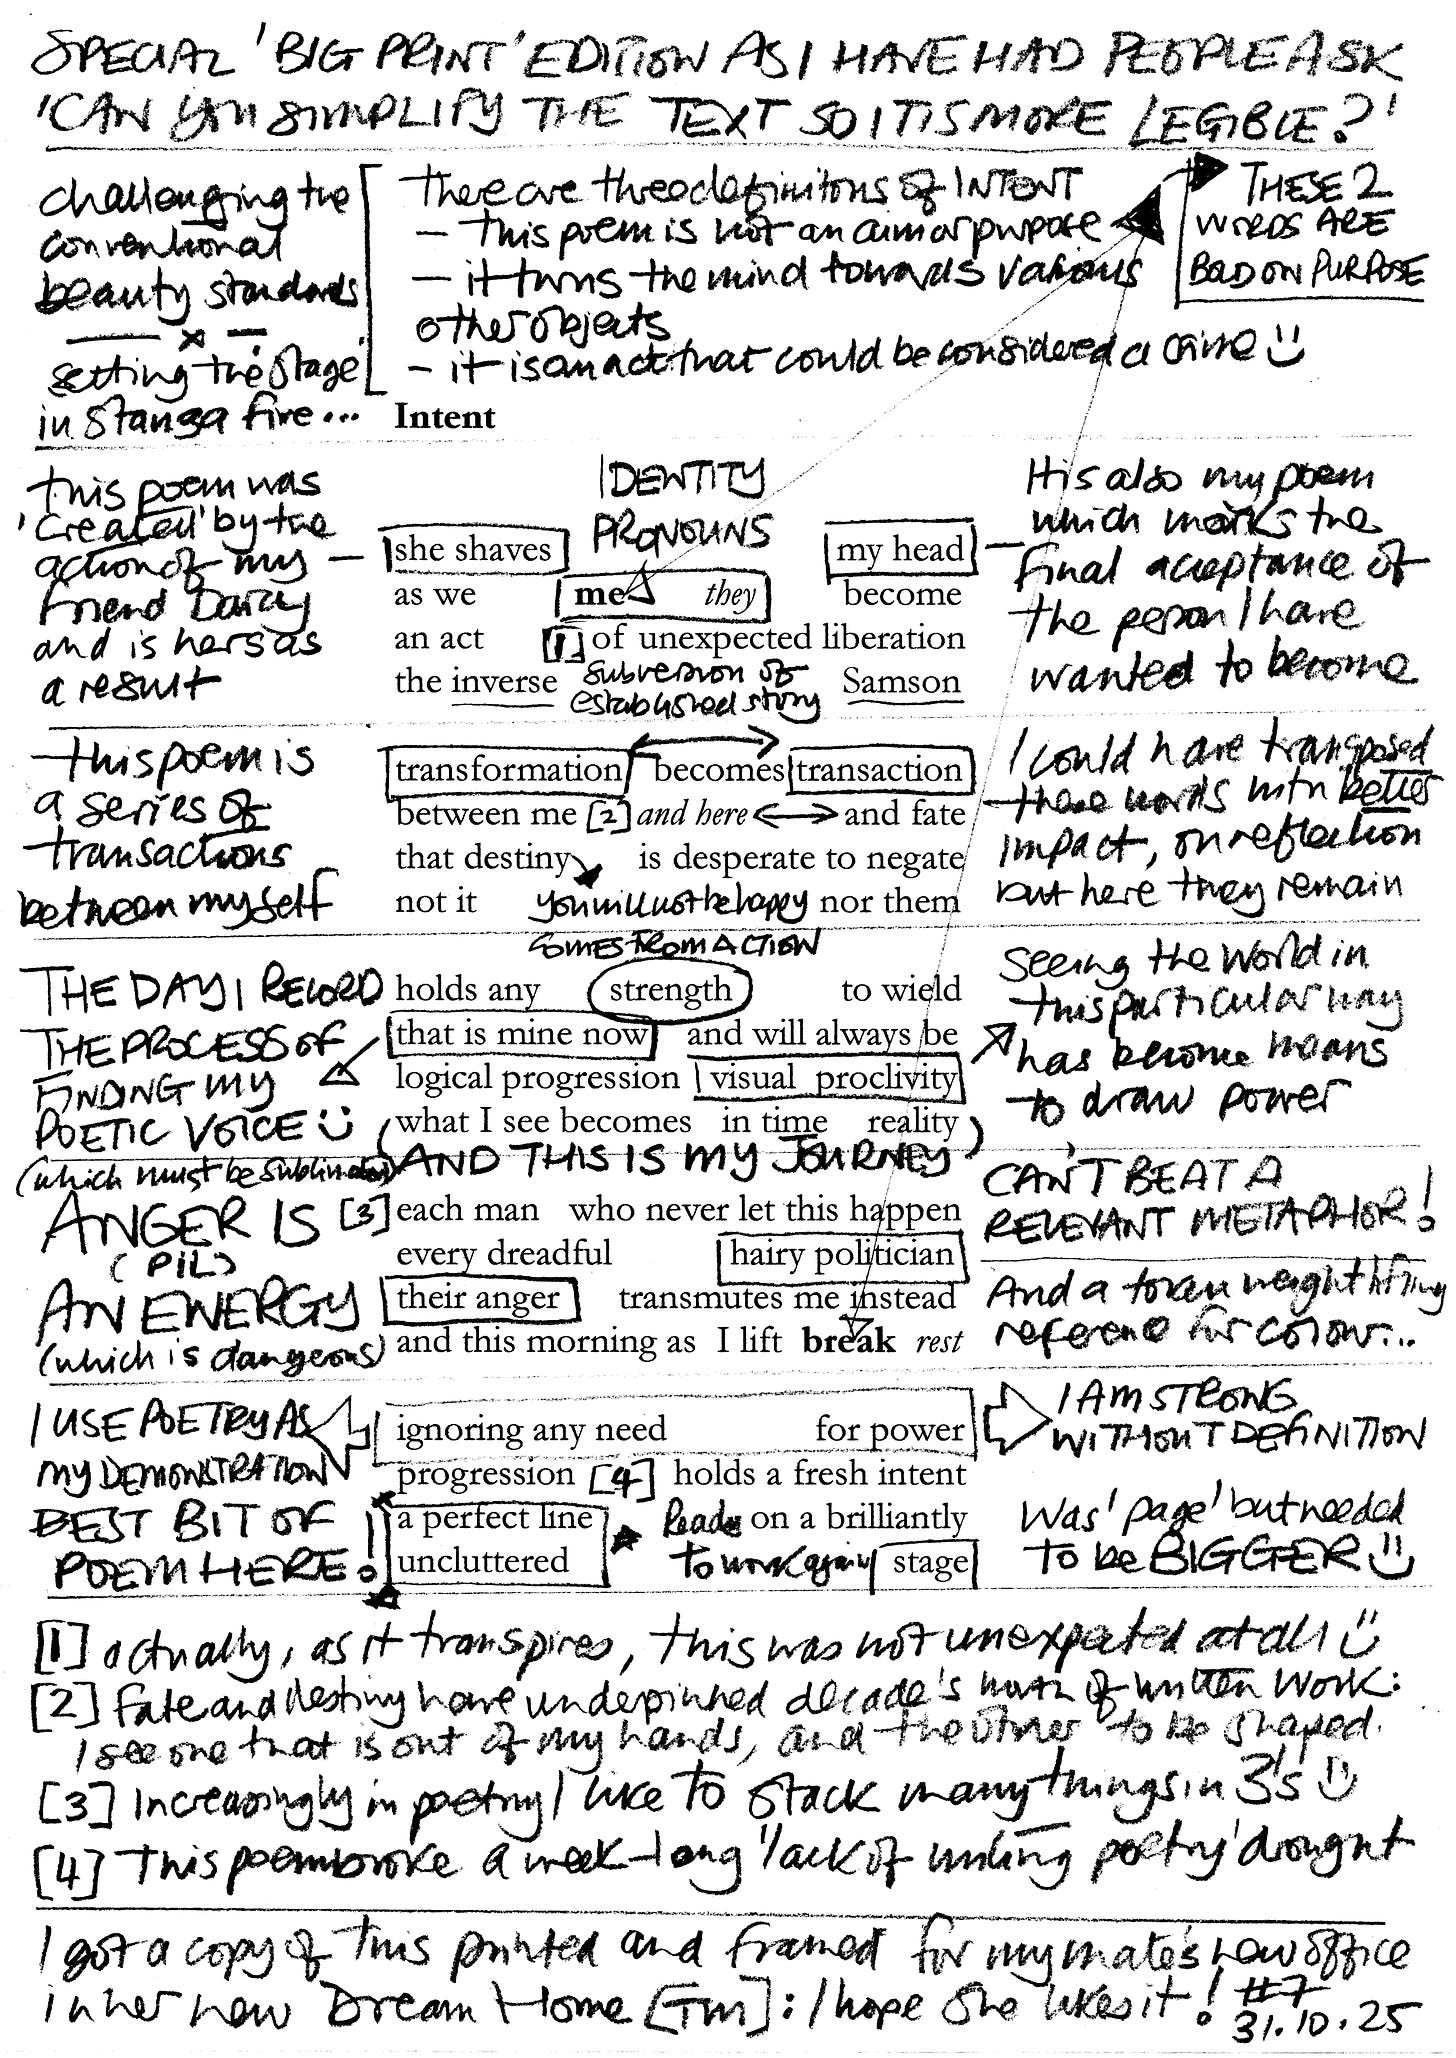 SPECIAL 'BIG PRINT' EDITION AS I HAVE HAD PEOPLE ASK
'CAN YOU SIMPLIFY THE TEXT SO IT IS MORE LEGIBLE?'
challenging the
conventional
beauty standards
— x —
setting the stage
in stanza five...
there are three definitions of INTENT
— this poem is not an aim or purpose
— it turns the mind towards various
other objects
— it is an act that could be considered a crime
THESE 2
WORDS ARE
BOLD ON PURPOSE
Intent
this poem was
'created' by the
action of my
friend Darcy
and is hers as
a result
IDENTITY
PRONOUNS
she shaves my head
as we me they become
an act [1] of unexpected liberation
the inverse subversion of Samson
established story
It is also my poem
which marks the
final acceptance of
the person I have
wanted to become
this poem is
a series of
transactions
between myself
transformation becomes transaction
between me [2] and here and fate
that destiny is desperate to negate
not it you will not be happy nor them
I could have transposed
these words with better
impact, on reflection
but here they remain
THE DAY I RECORD
THE PROCESS OF
FINDING MY
POETIC VOICE
COMES FROM ACTION
holds any strength to wield
that is mine now and will always be
logical progression visual proclivity
(what I see becomes in time reality)
AND THIS IS MY JOURNEY
Seeing the world in
this particular way
has become means
to draw power
(which must be sublimated)
ANGER IS
(PIL)
AN ENERGY
(which is dangerous)
[3] each man who never let this happen
every dreadful hairy politician
their anger transmutes me instead
and this morning as I lift break rest
CAN'T BEAT A
RELEVANT METAPHOR!
And a token weightlifting
reference for colour...
I USE POETRY AS
MY DEMONSTRATION
BEST BIT OF
POEM HERE!
ignoring any need for power
progression [4] holds a fresh intent
a perfect line Ready on a brilliantly
uncluttered to work again stage
I AM STRONG
WITHOUT DEFINITION
Was 'page' but needed
to be BIGGER
[1] actually, as it transpires, this was not unexpected at all
[2] Fate and destiny have underpinned decade's worth of written work:
I see one that is out of my hands, and the other to be shaped.
[3] Increasingly in poetry I like to stack many things in 3's
[4] This poem broke a week-long 'lack of writing poetry' drought
I got a copy of this printed and framed for my mate's new office
in her new Dream Home [TM]: I hope she likes it! #7
31.10.25